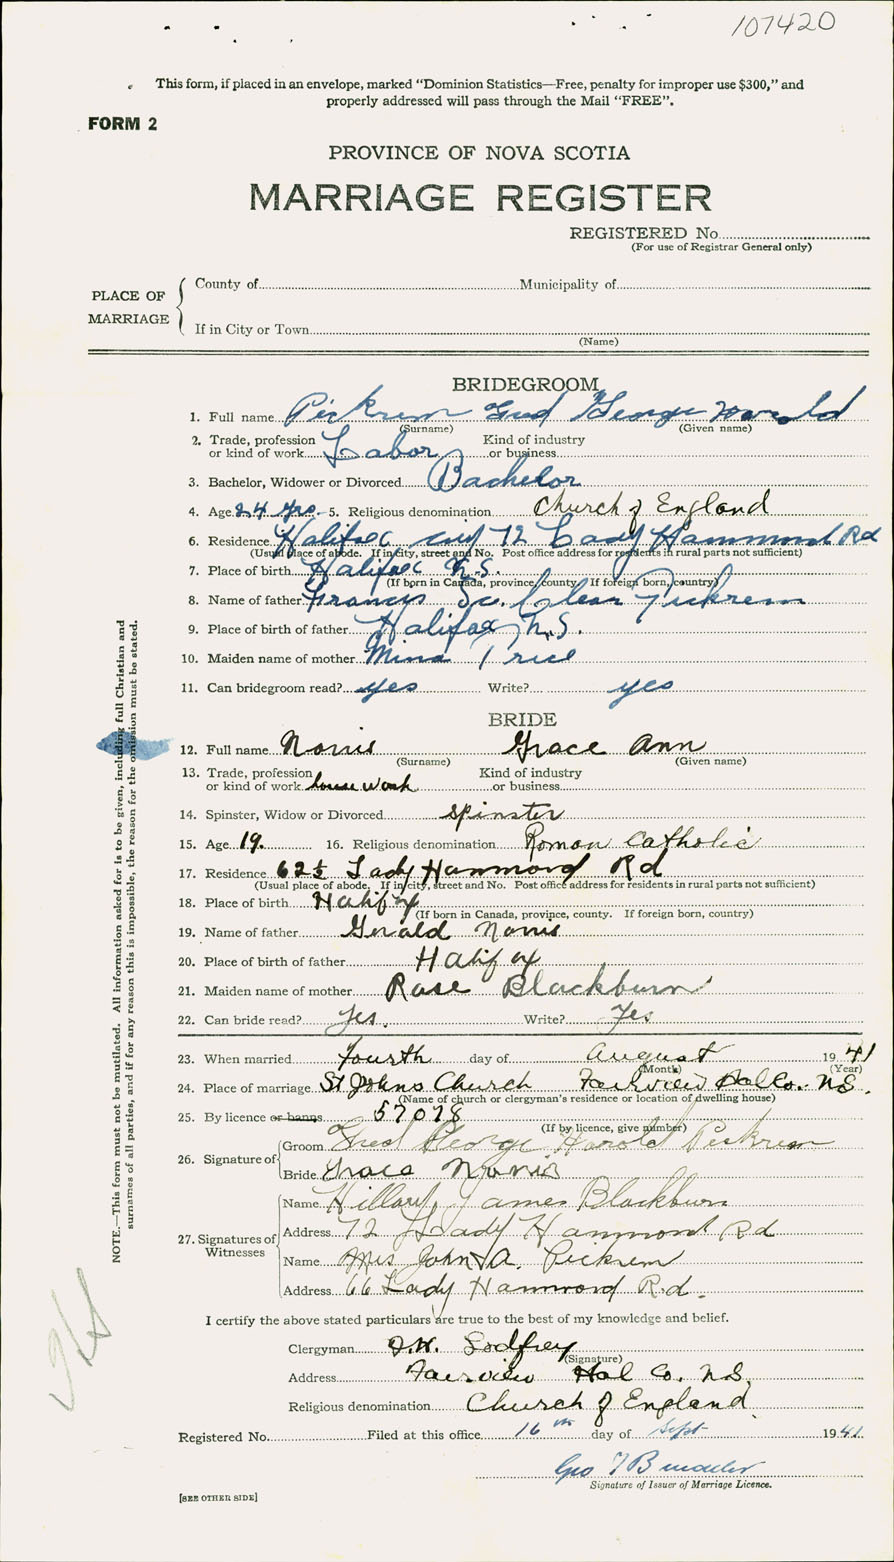 107420
This form, if placed in an envelope, marked “Dominion Statistics—Free, penalty for improper use $300,” and
properly addressed will pass through the Mail “FREE”.
FORM 2
PROVINCE OF NOVA SCOTIA
MARRIAGE REGISTER
REGISTERED No.
(For use of Registrar General only)
PLACE OF MARRIAGE
County of Municipality of
If in City or Town
(Name)
BRIDEGROOM
1. Full name Pickrem Fred George Harold
(Surname) (Given name)
2. Trade, profession or kind of work Labor Kind of industry or business
3. Bachelor, Widower or Divorced Bachelor
4. Age 24 yrs. 5. Religious denomination Church of England
6. Residence Halifax city 72 Lady Hammond Rd
(Usual place of abode. If in City, street and No. Post office address for residents in rural parts not sufficient)
7. Place of birth Halifax N.S.
(If born in Canada, province, county. If foreign born, country)
8. Name of father Francis Pickrem
9. Place of birth of father Halifax, N.S.
10. Maiden name of mother Mina Price
11. Can bridegroom read? yes Write? yes
BRIDE
12. Full name Norris Grace Ann
(Surname) (Given name)
13. Trade, profession or kind of work house work Kind of industry or business
14. Spinster, Widow or Divorced Spinster
15. Age 19. 16. Religious denomination Roman Catholic
17. Residence 62½ Lady Hammond Rd
(Usual place of abode. If in city, street and No. Post office address for residents in rural parts not sufficient)
18. Place of birth Halifax
(If born in Canada, province, county. If foreign born, country)
19. Name of father Gerald Norris
20. Place of birth of father Halifax
21. Maiden name of mother Rose Blackburn
22. Can bride read? Yes. Write? Yes
23. When married fourth day of August 1941
(Month) (Year)
24. Place of marriage St Johns Church Fairview Hal Co. N.S.
(Name of church or clergyman's residence or location of dwelling house)
25. By licence or banns 57078
(If by licence, give number)
26. Signature of
Groom Fred George Harold Pickrem
Bride Grace Norris
27. Signatures of Witnesses
Name Hillary James Blackburn
Address 72 Lady Hammond Rd
Name Mrs John A. Pickrem
Address 66 Lady Hammond Rd.
I certify the above stated particulars are true to the best of my knowledge and belief.
Clergyman Godfrey
(Signature)
Address Fairview Hal Co. N.S.
Religious denomination Church of England
Registered No. Filed at this office 16th day of Sept 1941
Geo
Signature of Issuer of Marriage Licence.
[SEE OTHER SIDE]
NOTE.—This form must not be mutilated. All information asked for is to be given, including full Christian and
surnames of all parties, and if for any reason this is impossible, the reason for the omission must be stated.